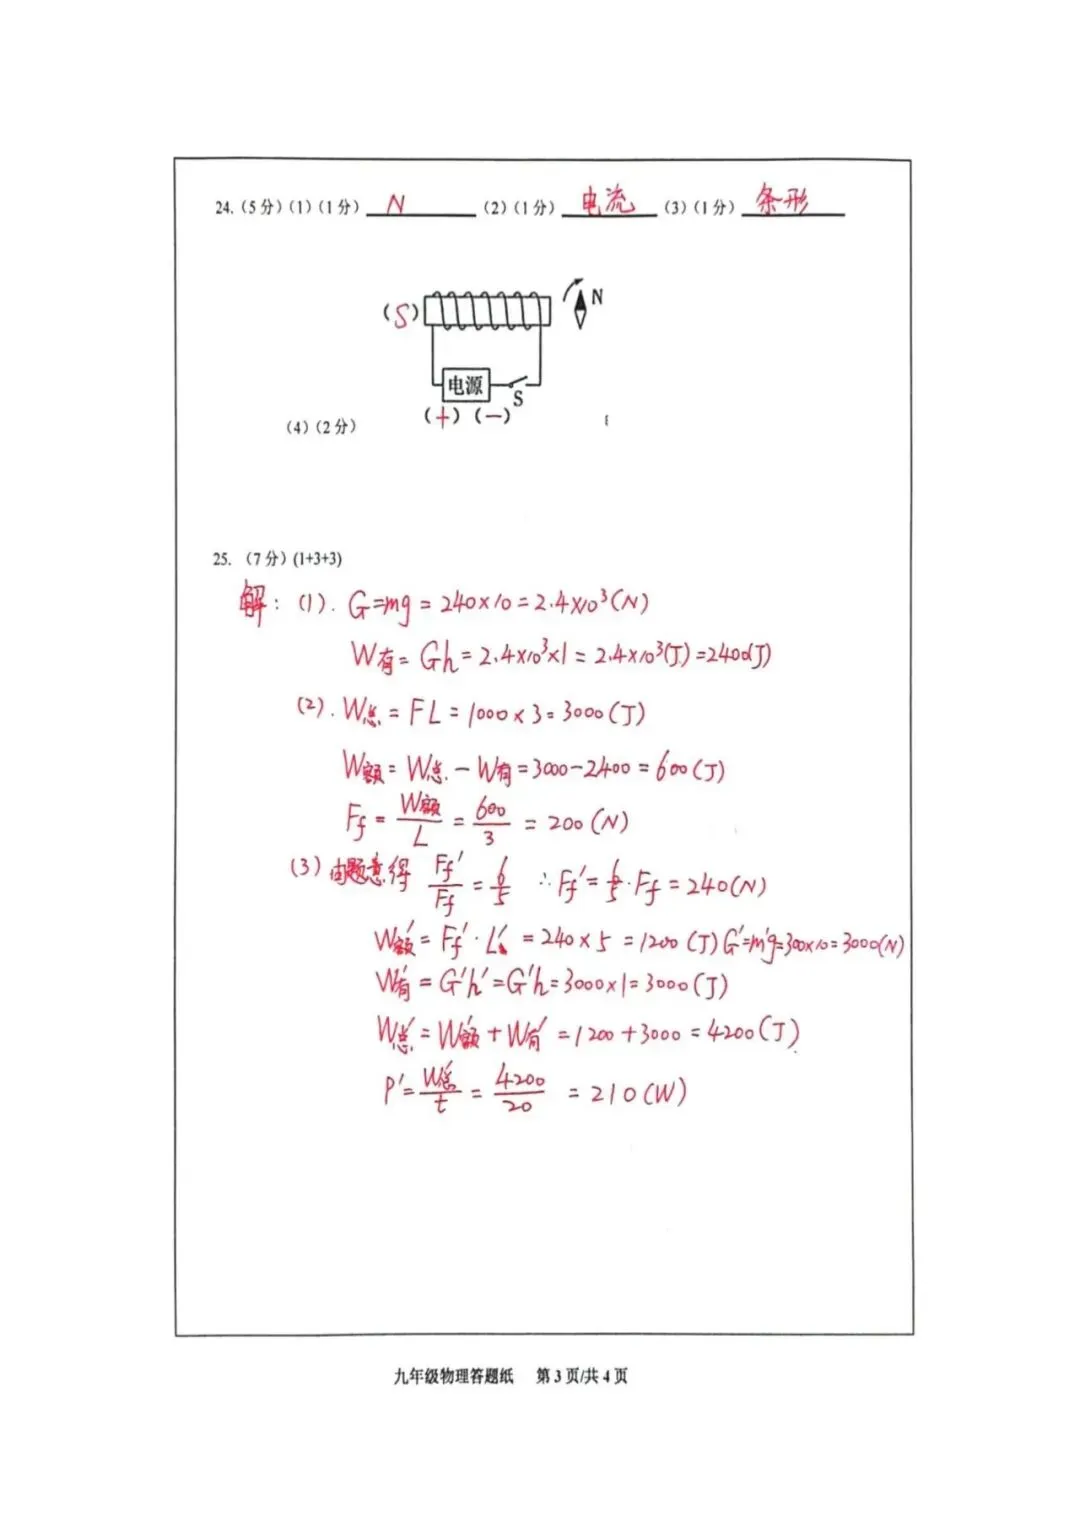 24.（5分）(1)（1分） N （2）（1分） 电流 （3）（1分） 条形
（S） N
电源 S
（+）（−）
（4）（2分）
25. （7分）(1+3+3)
解：(1). G=mg = 240×10 = 2.4×10³(N)
W有 = Gh = 2.4×10³×1 = 2.4×10³(J) = 2400(J)
(2). W总 = FL = 1000×3 = 3000(J)
W额 = W总 − W有 = 3000−2400 = 600(J)
Ff = W额/L = 600/3 = 200(N)
(3) 由题意得 Ff'/Ff = 6/5 ∴Ff' = 6/5·Ff = 240(N)
W额' = Ff'·L' = 240×5 = 1200(J) G'=m'g=300×10=3000(N)
W有' = G'h' = G'h = 3000×1 = 3000(J)
W总' = W额' + W有' = 1200+3000 = 4200(J)
P' = W总'/t = 4200/20 = 210(W)
九年级物理答题纸 第3页/共4页